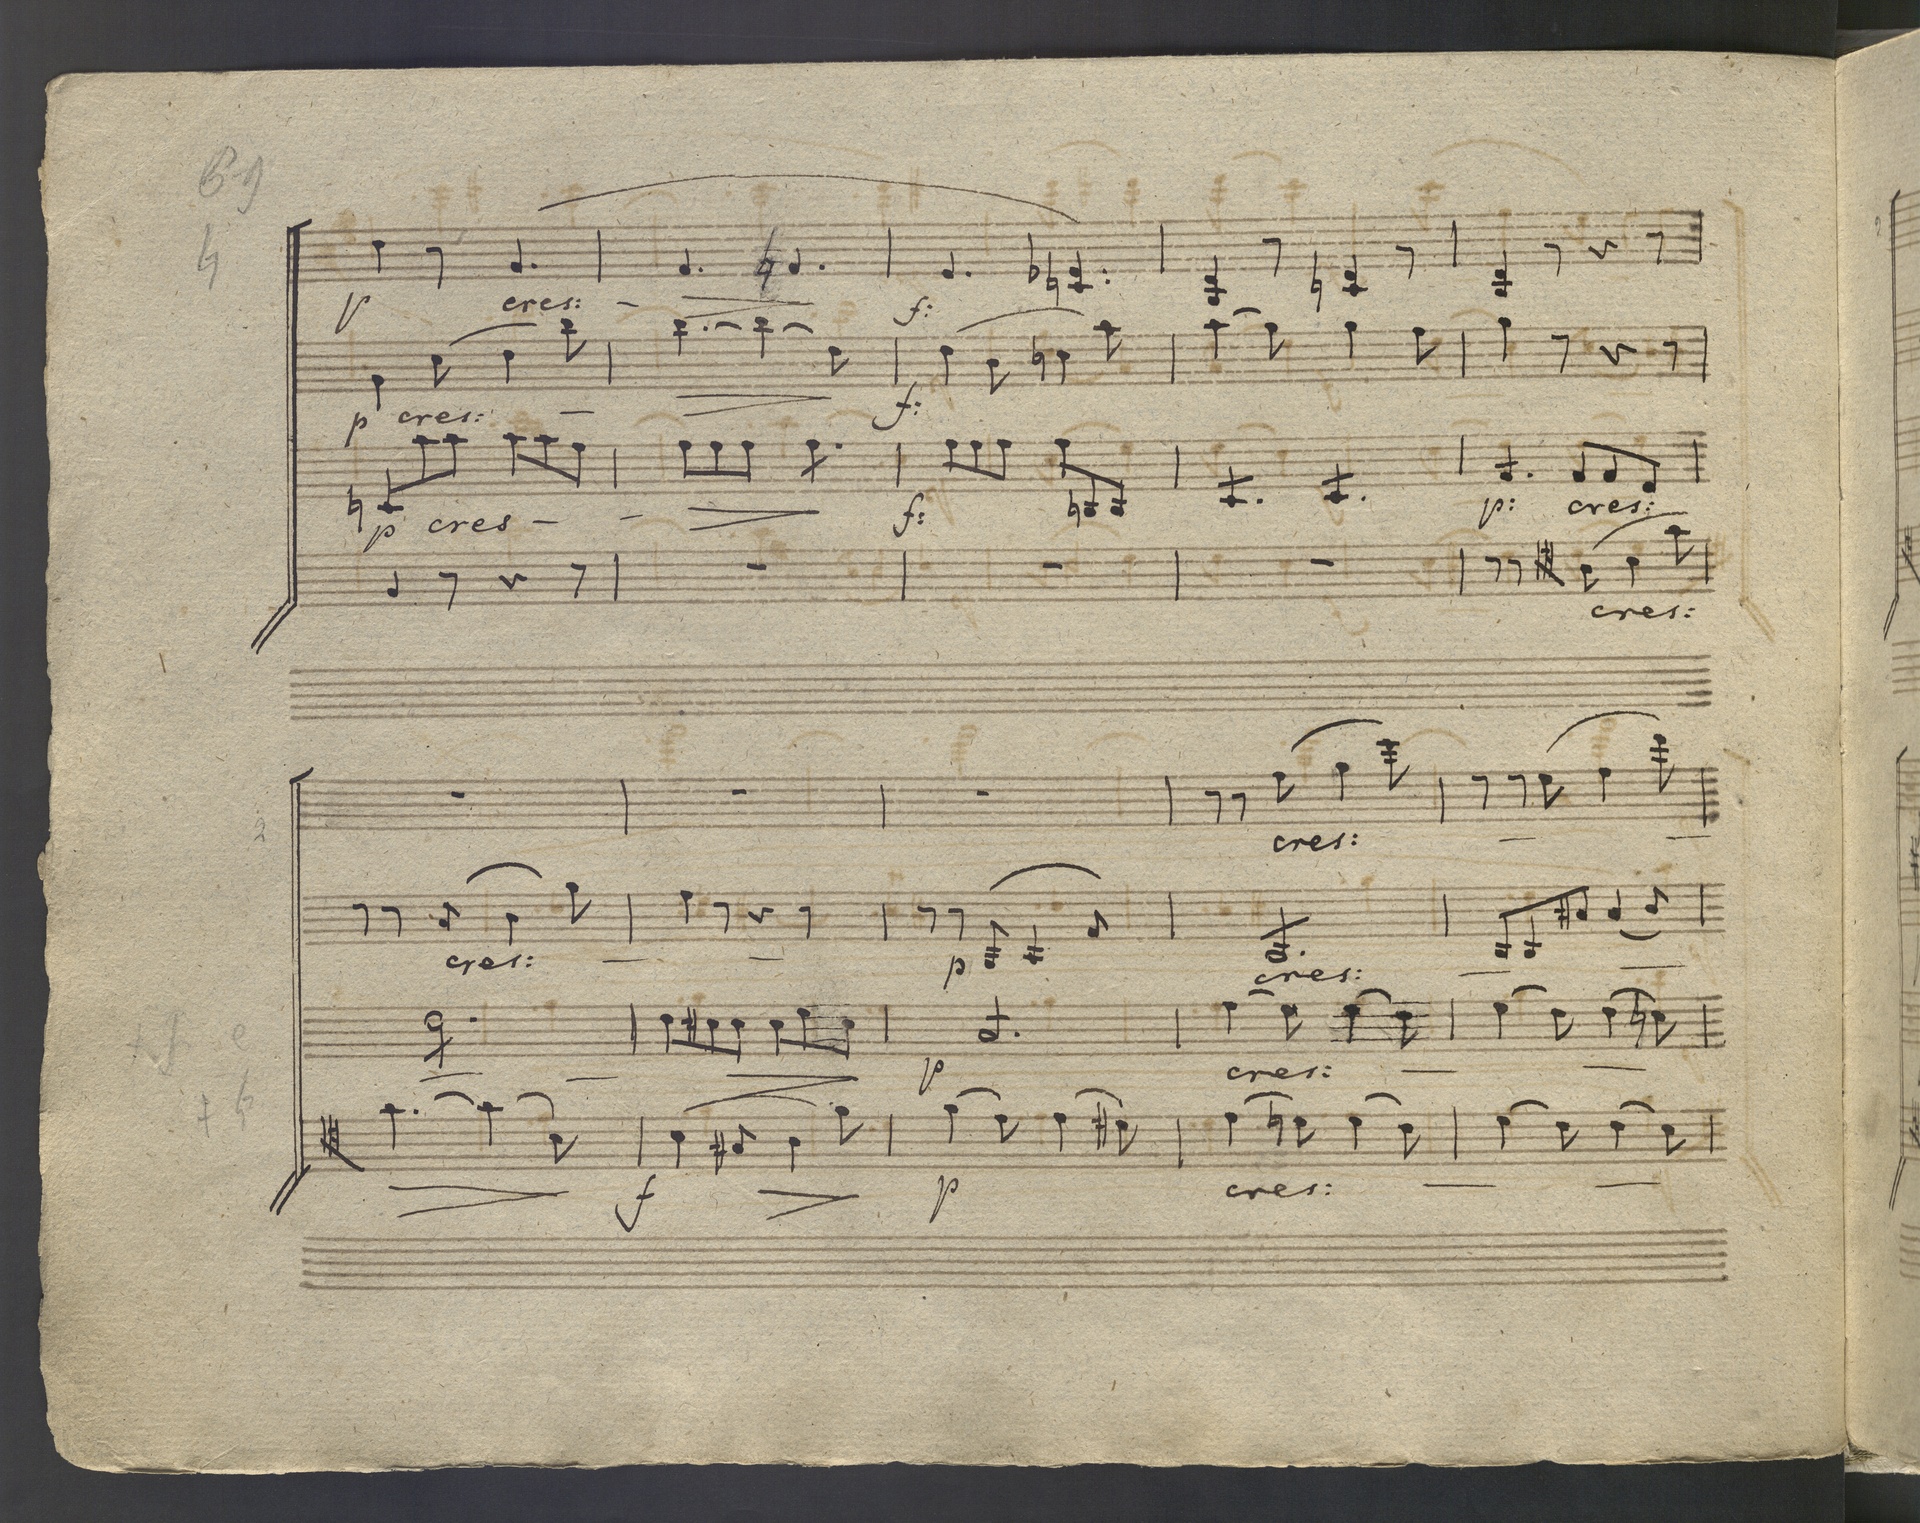 69
4
p cres: f:
p cres: f:
p cres f: p: cres:
cres:
2
cres:
cres: p cres:
p cres:
f p cres: